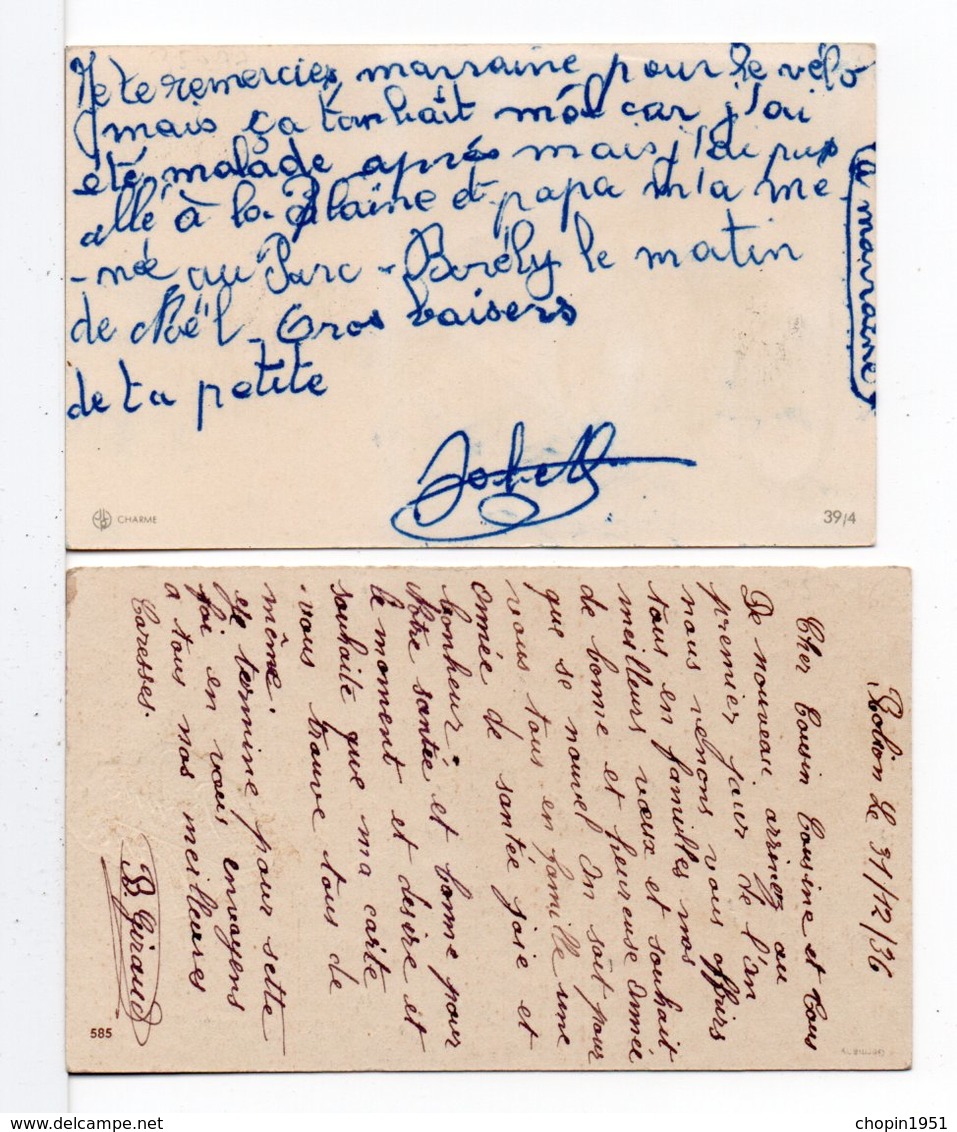 Je te remercies marraine pour le vélo
mais ça tombait mal car j'ai
été malade après mais j'ai pus
allé à la Plaine et papa m'a me
-née au Parc-Borély le matin
de Noël - Gros baisers
de ta petite
à marraine
CHARME
39/4
Le 31/12/36
Cher Cousin Cousine et tous
De nouveau arrivez au
premier jour de l'an
nous venons vous offrirs
tous en familles nos
meilleurs vœux et souhait
de bonne et heureuse année
que se nouvel an soit pour
vous tous en famille une
année de santée joie et
bonheur; et bonne pour
Notre santée et desire et
le moment et desire et
souhaite que ma carte
vous trouve tous de
même.
et termine pour sette
foi en vous envoyens
a tous nos meilleures
Caresses.
B Giraud
585
chopin1951